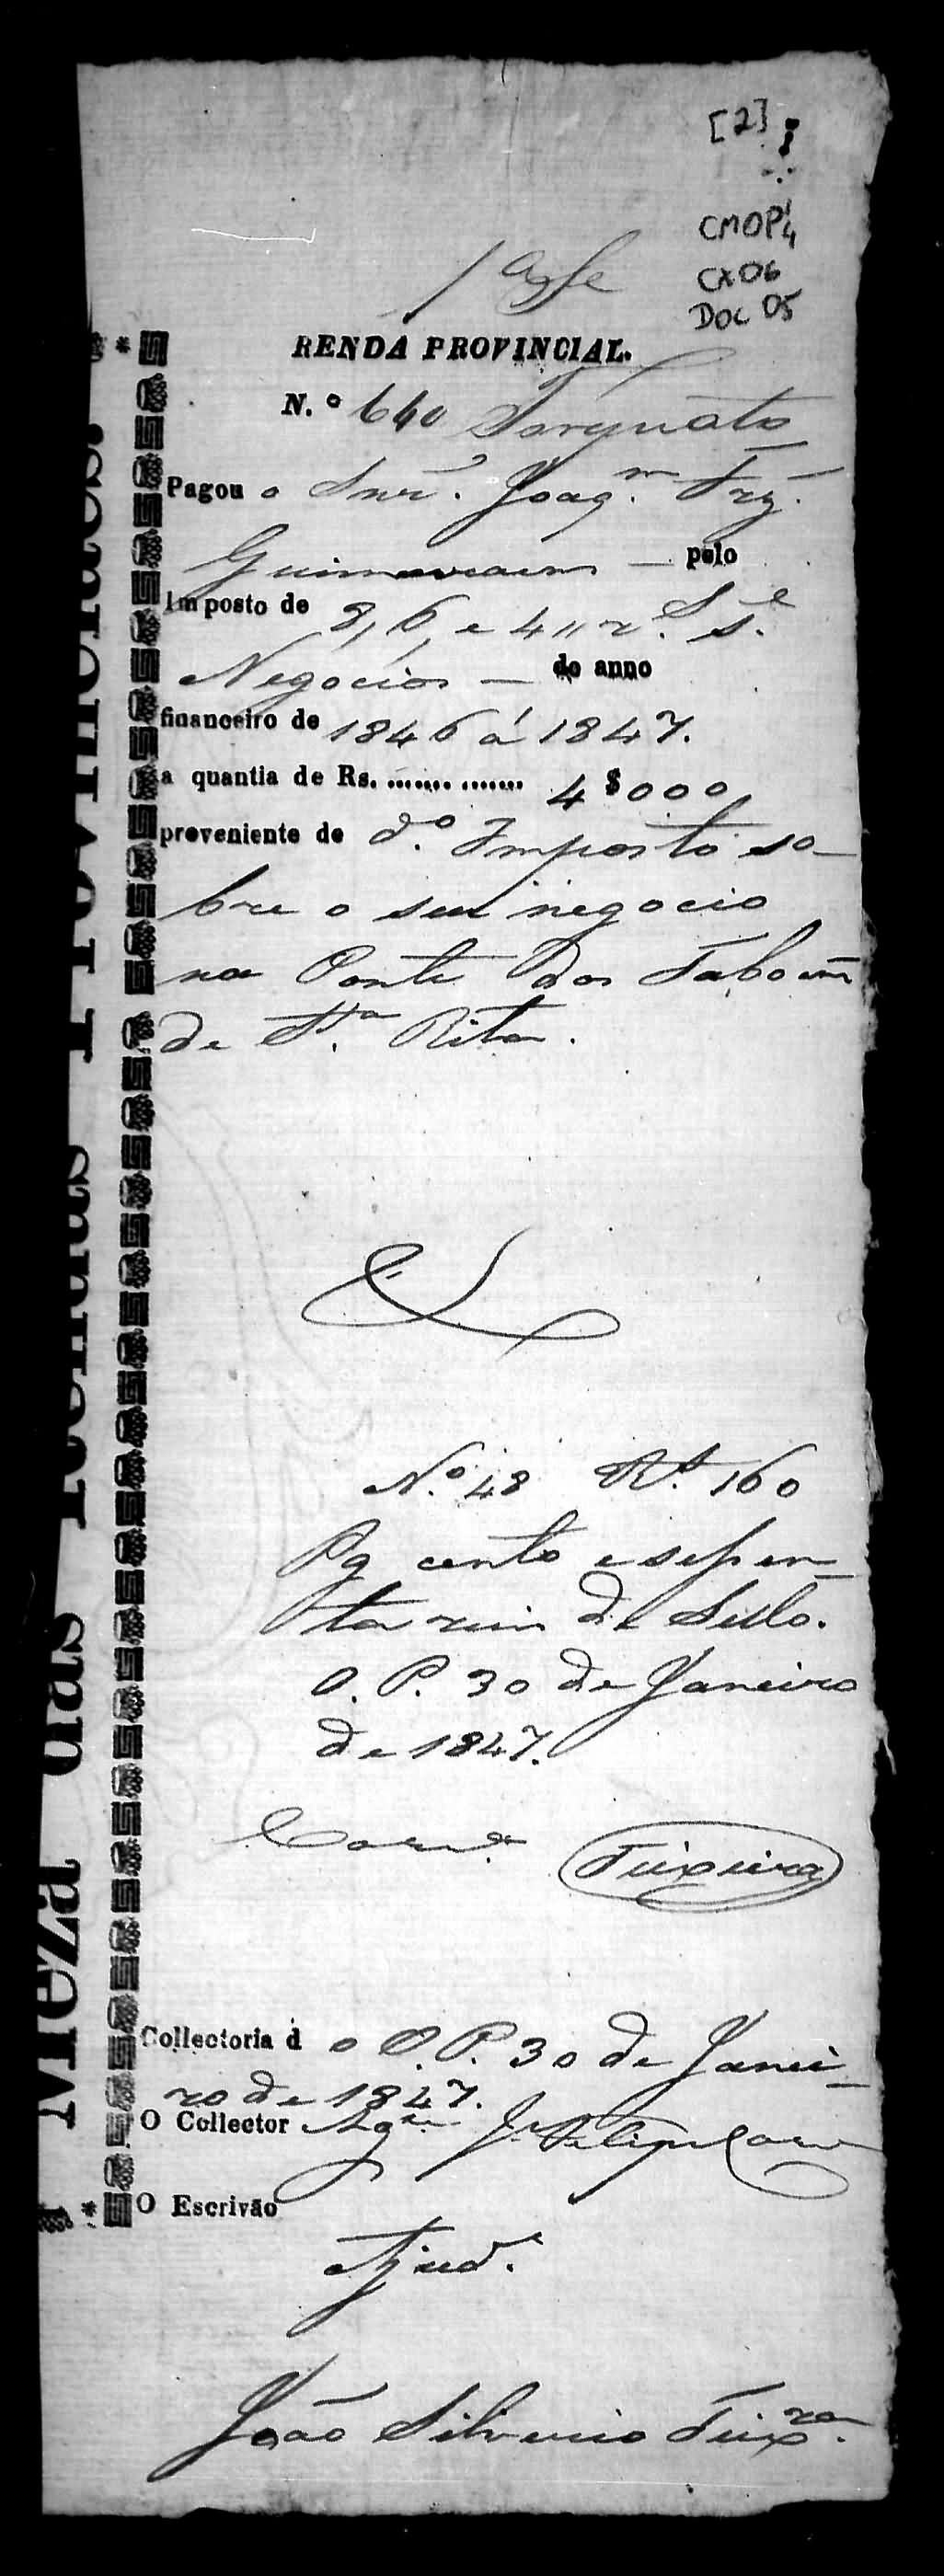 [2]
CMOP 4
CX06
DOC 05
RENDA PROVINCIAL.
N.º 640 Torquato
Pagou o Snr. Joaq.m Frz.
Guimaraens — pelo
Imposto de 8, 6, e 4 r.s s.e
Negocios — do anno
financeiro de 1846 á 1847.
a quantia de Rs. ....... ....... 4$000
proveniente de d.º Imposto so-
bre o seu negocio
na Ponte dos Taboens
de S.ta Rita.
N.º 48 R.s 160
Pg cento e sessen-
ta reis de Sello.
O. P. 30 de Janeiro
de 1847.
Teixeira
Collectoria d o O. P. 30 de Janei-
ro de 1847.
O Collector
O Escrivão
Ajud.e
João Silverio Teix.ra
Meza das Rendas Provinciaes.